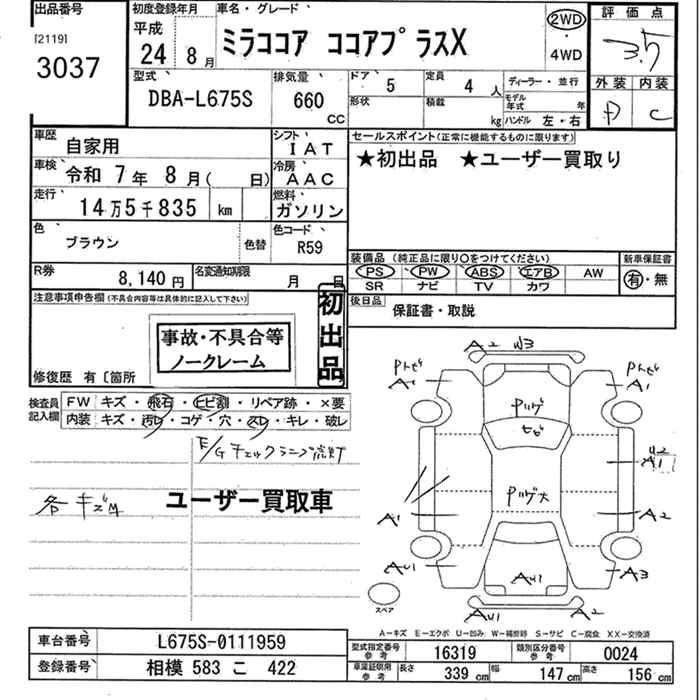 出品番号
[2119]
3037
初度登録年月
平成
24 8月
車名・グレード
ミラココア ココアプラスX
2WD
・
4WD
評価点
3.5
外装 内装
D C
型式
DBA-L675S
排気量
660
CC
ドア 5
形状
定員 4 人
積載 kg
ディーラー・並行
モデル年式 年
ハンドル 左・右
車歴 自家用
車検 令和 7年 8月( 日)
走行 14万5千835 km
シフト
IAT
冷房
AAC
燃料
ガソリン
色 ブラウン 色替
色コード
R59
R券 8,140円
名変通知期限 月 日
セールスポイント(正常に機能するものに限ります)
★初出品 ★ユーザー買取り
装備品 (純正品に限り○をつけてください)
PS PW ABS エアB AW
SR ナビ TV カワ
新車保証書
有・無
後日品
保証書・取説
注意事項申告欄(不具合内容等は具体的に記入して下さい)
初出品
事故・不具合等
ノークレーム
修復歴 有〔箇所
検査員記入欄
FW キズ・飛石・ヒビ割・リペア跡・×要
内装 キズ・汚レ・コゲ・穴・スレ・キレ・破レ
E/Gチェックランプ点灯
各キズ
ユーザー買取車
A2 W3
A1
A1
A1
A2
A1
A2
AU1
A3
AU1
AU1
A2
スペア
A―キズ E―エクボ U―凹み W―補修跡 S―サビ C―腐食 XX―交換済
車台番号 L675S-0111959
登録番号 相模 583 こ 422
型式指定番号 参考 16319
類別区分番号 参考 0024
車庫証明用 参考 長さ 339 cm 幅 147 cm 高さ 156 cm